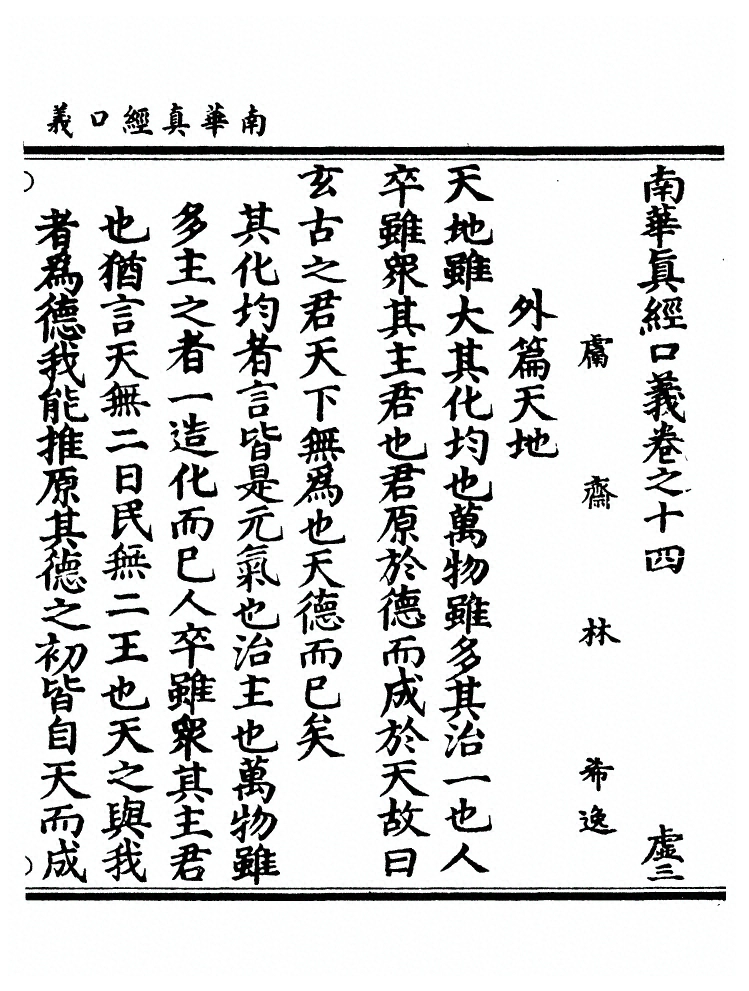 南華真經口義
南華眞經口義卷之十四
虛三
鬳齋林希逸
外篇天地
天地雖大其化均也萬物雖多其治一也人
卒雖衆其主君也君原於德而成於天故曰
玄古之君天下無爲也天德而已矣
其化均者言皆是元氣也治主也萬物雖
多主之者一造化而已人卒雖衆其主君
也猶言天無二日民無二王也天之與我
者爲德我能推原其德之初皆自天而成